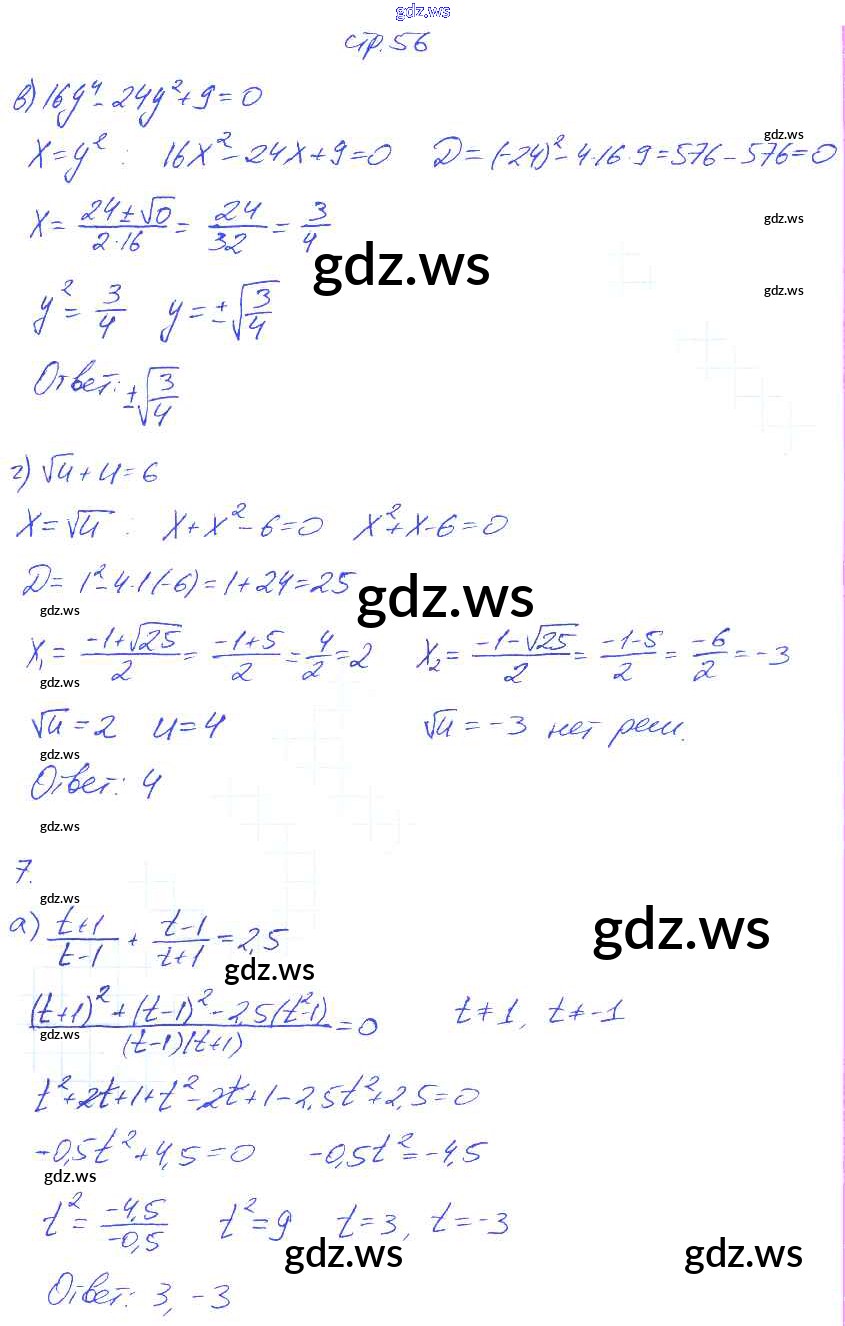 gdz.ws
стр. 56
в) 16y⁴ - 24y² + 9 = 0
gdz.ws
x = y² : 16x² - 24x + 9 = 0 D = (-24)² - 4·16·9 = 576 - 576 = 0
x = (24 ± √0)/(2·16) = 24/32 = 3/4 gdz.ws
gdz.ws
gdz.ws
y² = 3/4 y = ±√(3/4)
Ответ: ±√(3/4)
г) √u + u = 6
x = √u : x + x² - 6 = 0 x² + x - 6 = 0
D = 1² - 4·1(-6) = 1 + 24 = 25 gdz.ws
gdz.ws
x₁ = (-1+√25)/2 = (-1+5)/2 = 4/2 = 2 x₂ = (-1-√25)/2 = (-1-5)/2 = -6/2 = -3
gdz.ws
√u = 2 u = 4 √u = -3 нет реш.
gdz.ws
Ответ: 4
gdz.ws
7.
gdz.ws
а) (t+1)/(t-1) + (t-1)/(t+1) = 2,5 gdz.ws
gdz.ws
((t+1)² + (t-1)² - 2,5(t²-1))/((t-1)(t+1)) = 0 t ≠ 1, t ≠ -1
gdz.ws
t² + 2t + 1 + t² - 2t + 1 - 2,5t² + 2,5 = 0
-0,5t² + 4,5 = 0 -0,5t² = -4,5
gdz.ws
t² = -4,5/-0,5 t² = 9 t = 3, t = -3
gdz.ws gdz.ws
Ответ: 3, -3